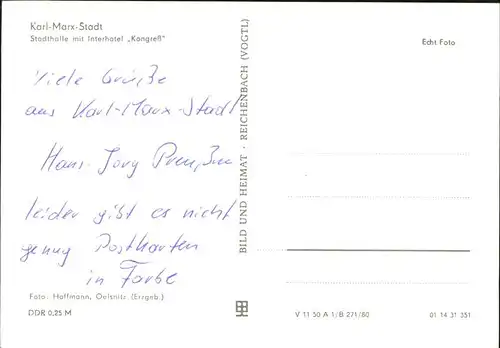 Karl-Marx-Stadt
Stadthalle mit Interhotel „Kongreß"
Echt Foto
Viele Grüße
aus Karl-Marx-Stadt
Hans-Jorg
leider gibt es nicht
genug Postkarten
in Farbe
BILD UND HEIMAT · REICHENBACH (VOGTL)
Foto: Hoffmann, Oelsnitz (Erzgeb.)
DDR 0,25 M
V 11 50 A 1/B 271/80
01 14 31 351